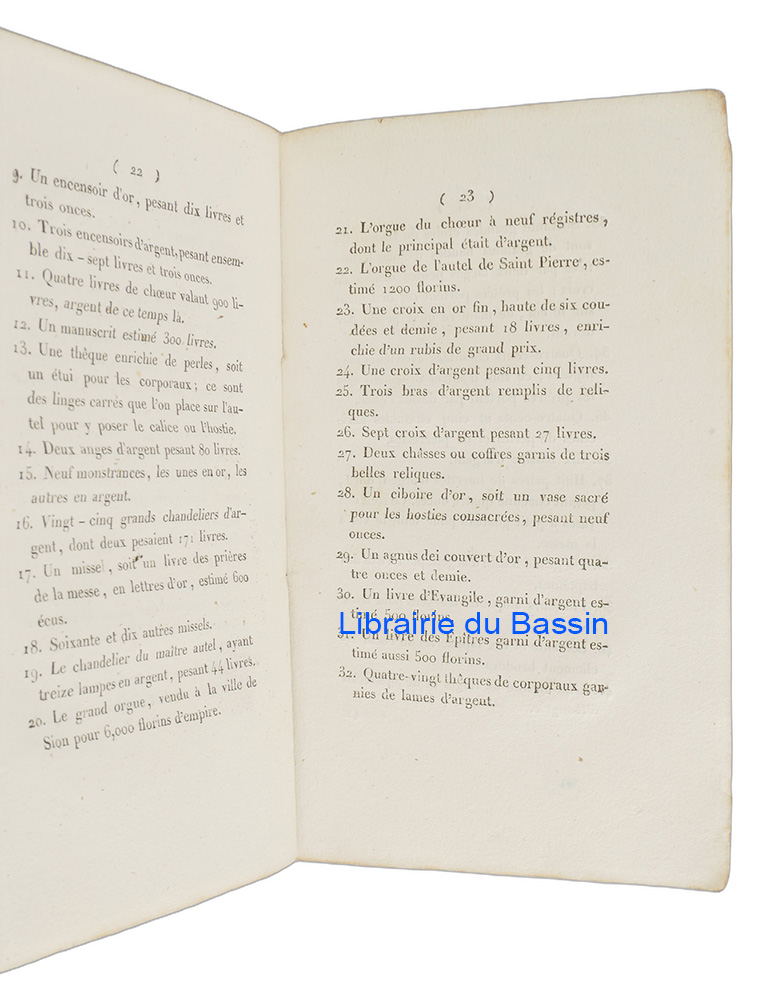 ( 22 )
9. Un encensoir d'or, pesant dix livres et
trois onces.
10. Trois encensoirs d'argent, pesant ensem-
ble dix - sept livres et trois onces.
11. Quatre livres de chœur valant 900 li-
vres, argent de ce temps là.
12. Un manuscrit estimé 300 livres.
13. Une thèque enrichie de perles, soit
un étui pour les corporaux; ce sont
des linges carrés que l'on place sur l'au-
tel pour y poser le calice ou l'hostie.
14. Deux anges d'argent pesant 80 livres.
15. Neuf monstrances, les unes en or, les
autres en argent.
16. Vingt - cinq grands chandeliers d'ar-
gent, dont deux pesaient 171 livres.
17. Un missel, soit un livre des prières
de la messe, en lettres d'or, estimé 600
écus.
18. Soixante et dix autres missels.
19. Le chandelier du maître autel, ayant
treize lampes en argent, pesant 44 livres.
20. Le grand orgue, vendu à la ville de
Sion pour 6,000 florins d'empire.
( 23 )
21. L'orgue du chœur à neuf régistres,
dont le principal était d'argent.
22. L'orgue de l'autel de Saint Pierre, es-
timé 1200 florins.
23. Une croix en or fin, haute de six cou-
dées et demie, pesant 18 livres, enri-
chie d'un rubis de grand prix.
24. Une croix d'argent pesant cinq livres.
25. Trois bras d'argent remplis de reli-
ques.
26. Sept croix d'argent pesant 27 livres.
27. Deux châsses ou coffres garnis de trois
belles reliques.
28. Un ciboire d'or, soit un vase sacré
pour les hosties consacrées, pesant neuf
onces.
29. Un agnus dei couvert d'or, pesant qua-
tre onces et demie.
30. Un livre d'Evangile, garni d'argent es-
timé 500 florins.
Librairie du Bassin
31. Un livre des Epîtres garni d'argent es-
timé aussi 500 florins.
32. Quatre-vingt thèques de corporaux gar-
nies de lames d'argent.